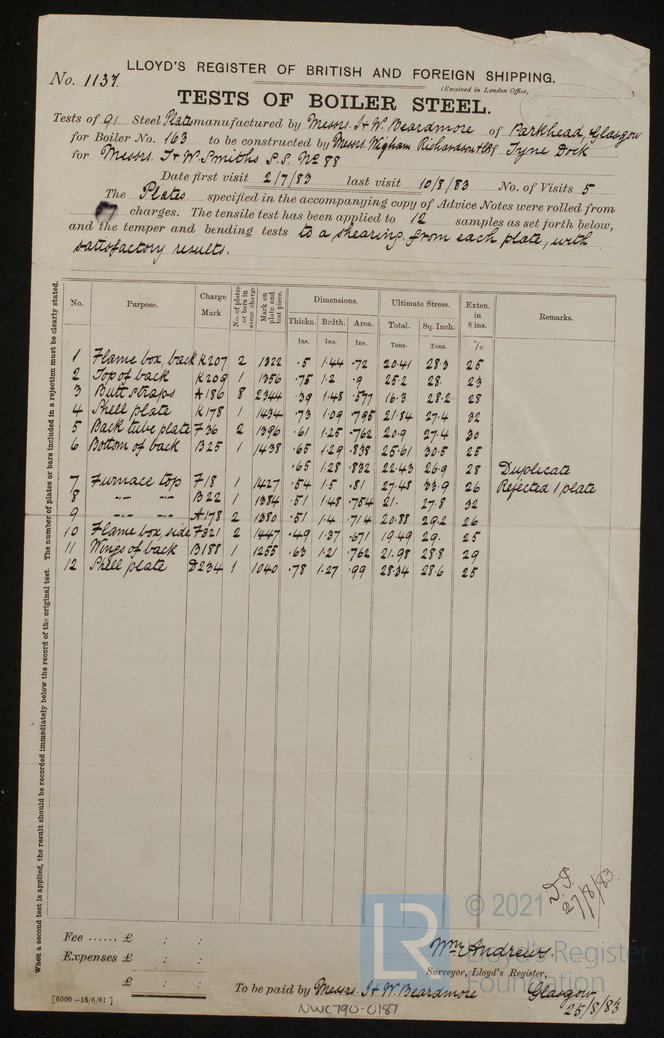 LLOYD'S REGISTER OF BRITISH AND FOREIGN SHIPPING.
No. 1137
(Received in London Office,
TESTS OF BOILER STEEL.
Tests of 91 Steel Plates manufactured by Messrs. & W. Beardmore of Parkhead, Glasgow
for Boiler No. 163 to be constructed by Messrs. Wigham Richardson & Co Tyne Dock
for Messrs. T & W. Smiths S.S. No 88
Date first visit 2/7/83 last visit 10/8/83 No. of Visits 5
The Plates specified in the accompanying copy of Advice Notes were rolled from
charges. The tensile test has been applied to 12 samples as set forth below,
and the temper and bending tests to a shearing from each plate, with
satisfactory results.
When a second test is applied, the result should be recorded immediately below the record of the original test. The number of plates or bars included in a rejection must be clearly stated.
No. Purpose. Charge Mark No. of plates or bars in same charge Mark on plate and test piece. Dimensions. Ultimate Stress. Exten. in 8 ins. Remarks.
Thickn. Brdth. Area. Total. Sq. Inch.
Ins. Ins. Ins. Tons. Tons. %
1 Flame box, back K207 2 1322 .5 1.44 .72 20.41 28.3 25
2 Top of back K209 1 1356 .75 1.2 .9 25.2 28. 23
3 Butt straps A186 8 2344 .39 1.48 .577 16.3 28.2 28
4 Shell plate K178 1 1434 .73 1.09 .795 21.84 27.4 32
5 Back tube plate F36 2 1396 .61 1.25 .762 20.9 27.4 30
6 Bottom of back B25 1 1438 .65 1.29 .838 25.61 30.5 25
.65 1.28 .832 22.43 26.9 28 Duplicate
7 Furnace top F18 1 1427 .54 1.5 .81 27.48 33.9 26 Rejected 1 plate
8 -"- -"- B22 1 1384 .51 1.48 .754 21. 27.8 32
9 -"- -"- A178 2 1380 .51 1.4 .714 20.88 29.2 26
10 Flame box, side F321 2 1447 .49 1.37 .671 19.49 29. 25
11 Wings of back B188 1 1255 .63 1.21 .762 21.98 28.8 29
12 Shell plate D234 1 1040 .78 1.27 .99 28.34 28.6 25
27/8/83
© 2021
LR
Lloyd's Register
Foundation
Fee ...... £ : :
Expenses £ : :
£ : :
Wm Andrews.
Surveyor, Lloyd's Register,
To be paid by Messrs. & W. Beardmore Glasgow
25/8/83
[6000 -18/6/81]
NWC790-0187